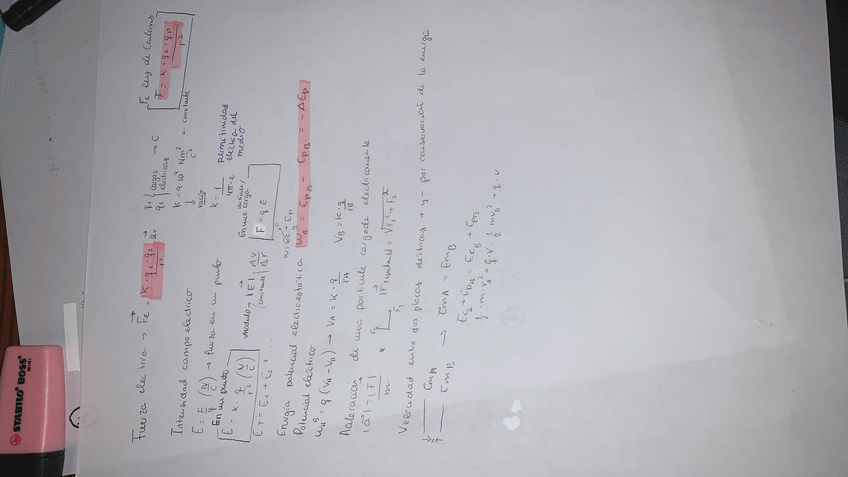 Fuerza electrica → Fe = K · q1 · q2 / r² ur → q1 q2 } cargas electricas → C
Fe ley de Coulomb
F = K · q1 · q2 / r²
K = 9 · 10⁹ Nm²/C² ← constante
↓ vacío
K = 1/4π·ε
permitividad eléctrica del medio
Intensidad campo electrico
E = F/q (N/C) → fuerza en un punto
En un punto
E = K · q/r² (N/C)
modulo → |E| ΔV/Δr
constante
En una carga
F = q · E
ET = E1 + E2 + ...
Energia potencial electroestática
W = Ec + Ep
Potencial eléctrico
WAB = EpA - EpB = -ΔEp
WAB = q (VA - VB) → VA = K · q/rA VB = K · q/rB
Aceleración de una particula cargada electricamente
|a| = |F|/m * F2 F1 |F resultante| = √F1² + F2²
Velocidad entre dos placas eléctricas + y - por conservación de la energí
EmA
EmB → EmA = EmB
EcA + EpA = EcB + EpB
½ · m · vA² + q · V = ½ m vB² + q · V
STABILO BOSS
MINI